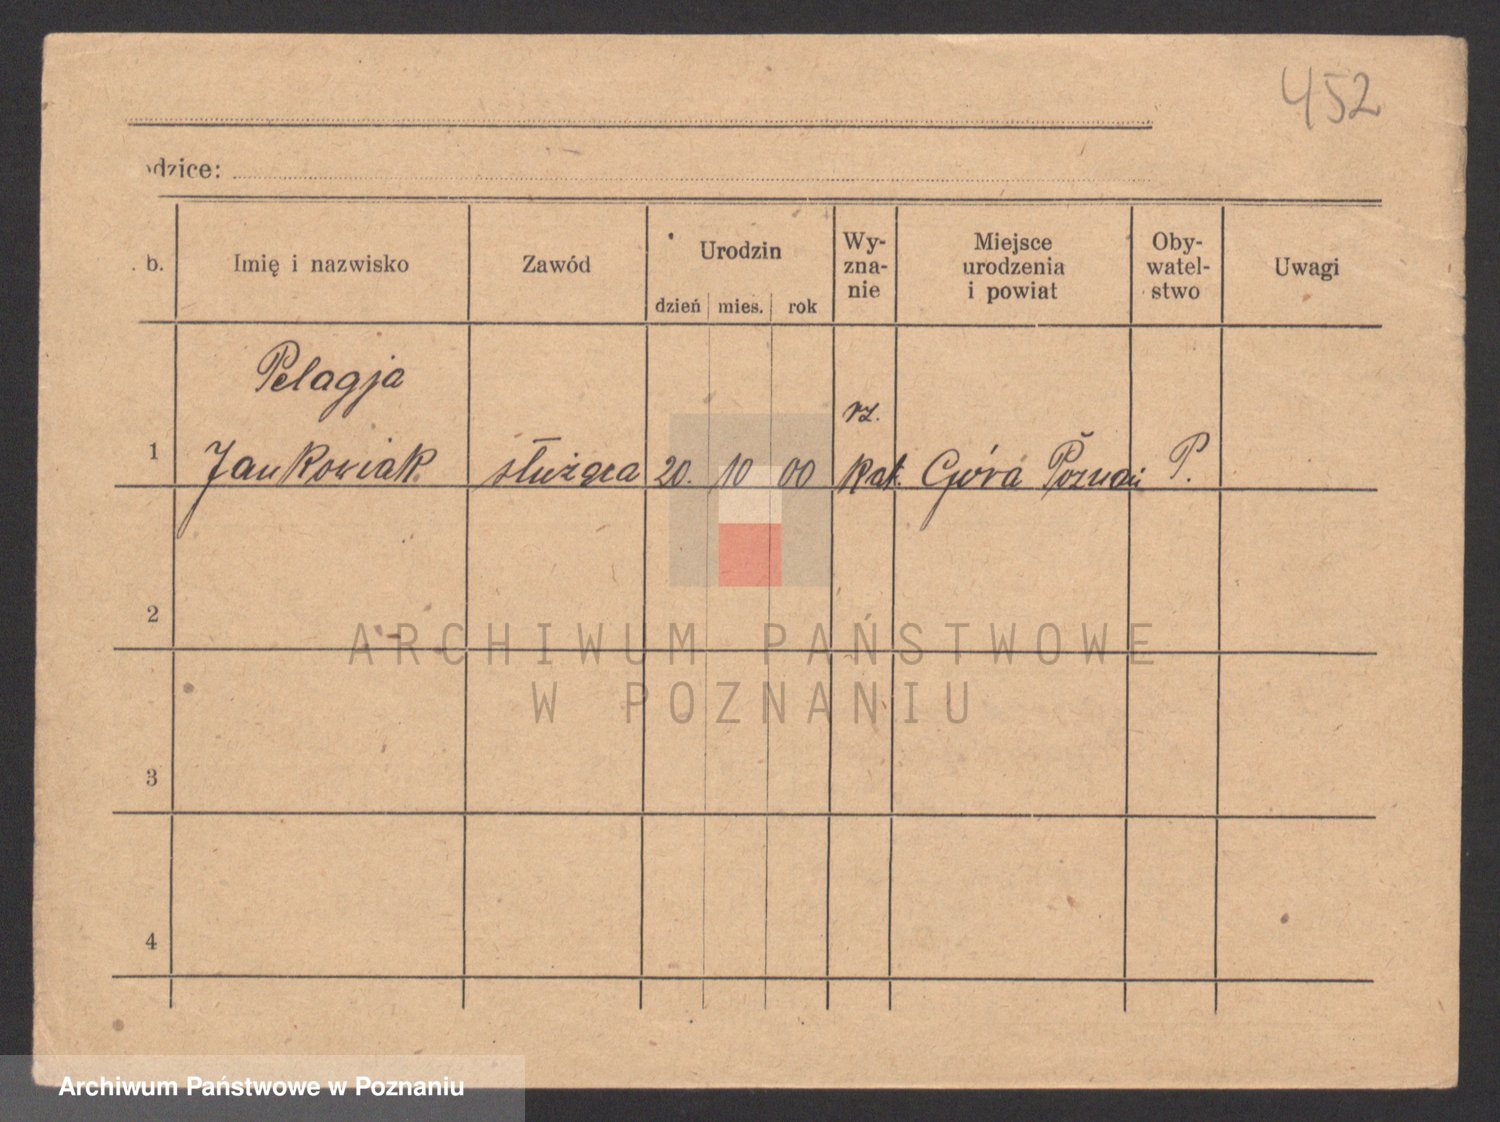 452
odzice:
b. Imię i nazwisko Zawód Urodzin dzień mies. rok Wy-zna-nie Miejsce urodzenia i powiat Oby-watel-stwo Uwagi
Pelagja rz.
1 Jankowiak służąca 20. 10 00 kat. Góra Poznań P.
2
ARCHIWUM PAŃSTWOWE
W POZNANIU
3
4
Archiwum Państwowe w Poznaniu